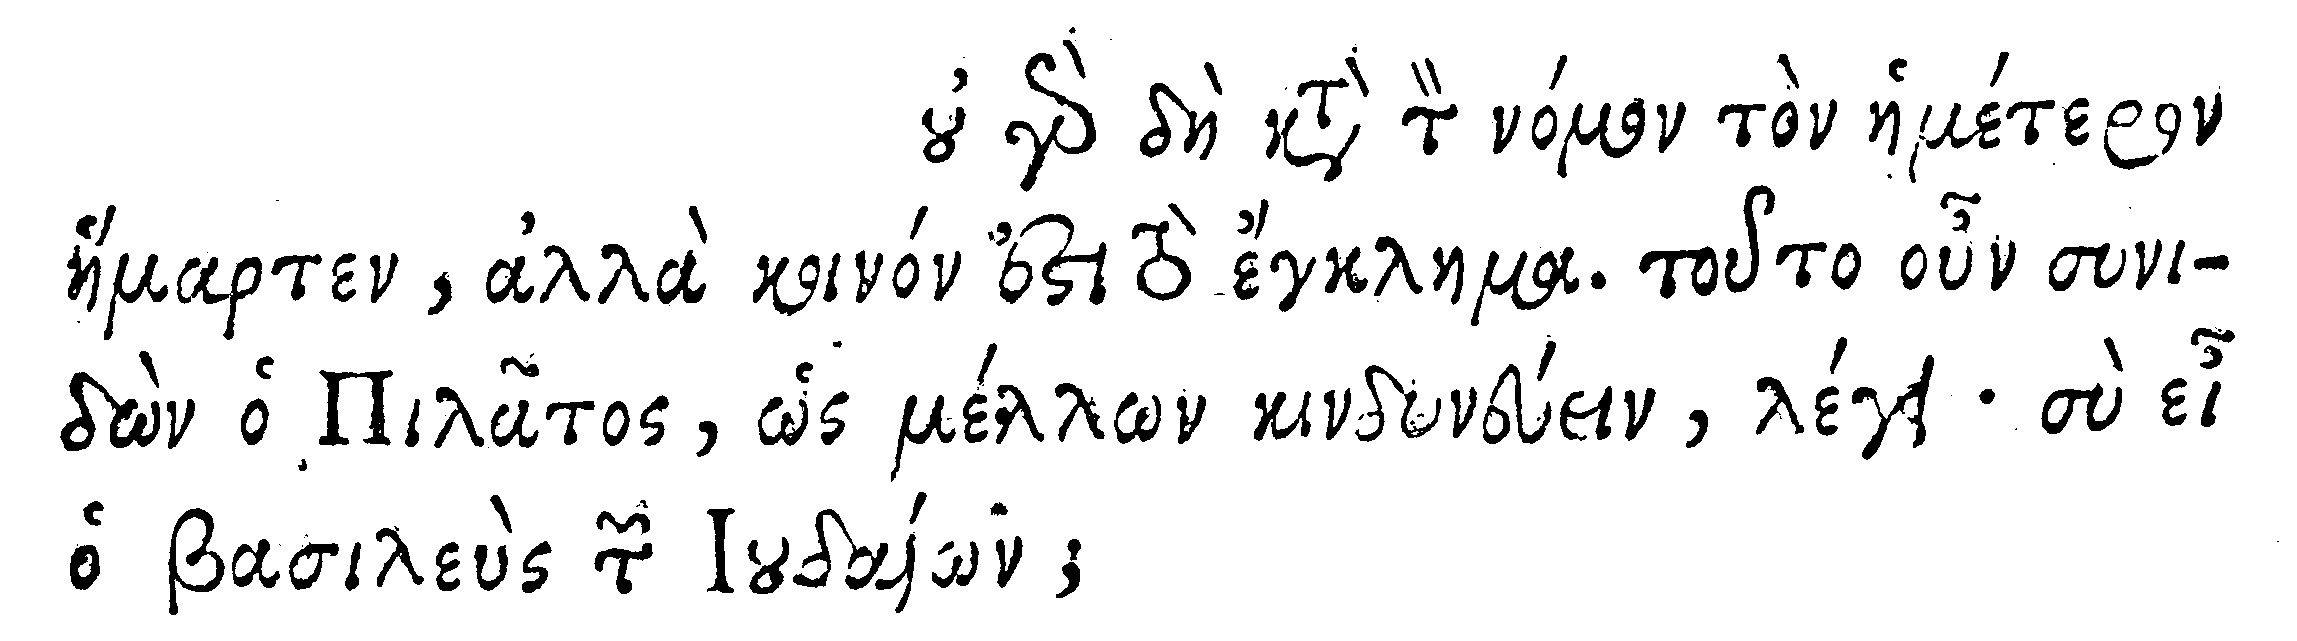 οὐ γὰρ δὴ κατὰ τὸν νόμον τὸν ἡμέτερον
ἥμαρτεν, ἀλλὰ κοινόν ἐστι τὸ ἔγκλημα. τοῦτο οὖν συνι-
δὼν ὁ Πιλᾶτος, ὡς μέλλων κινδυνεύειν, λέγει · σὺ εἶ
ὁ βασιλεὺς τῶν Ιουδαίων ;